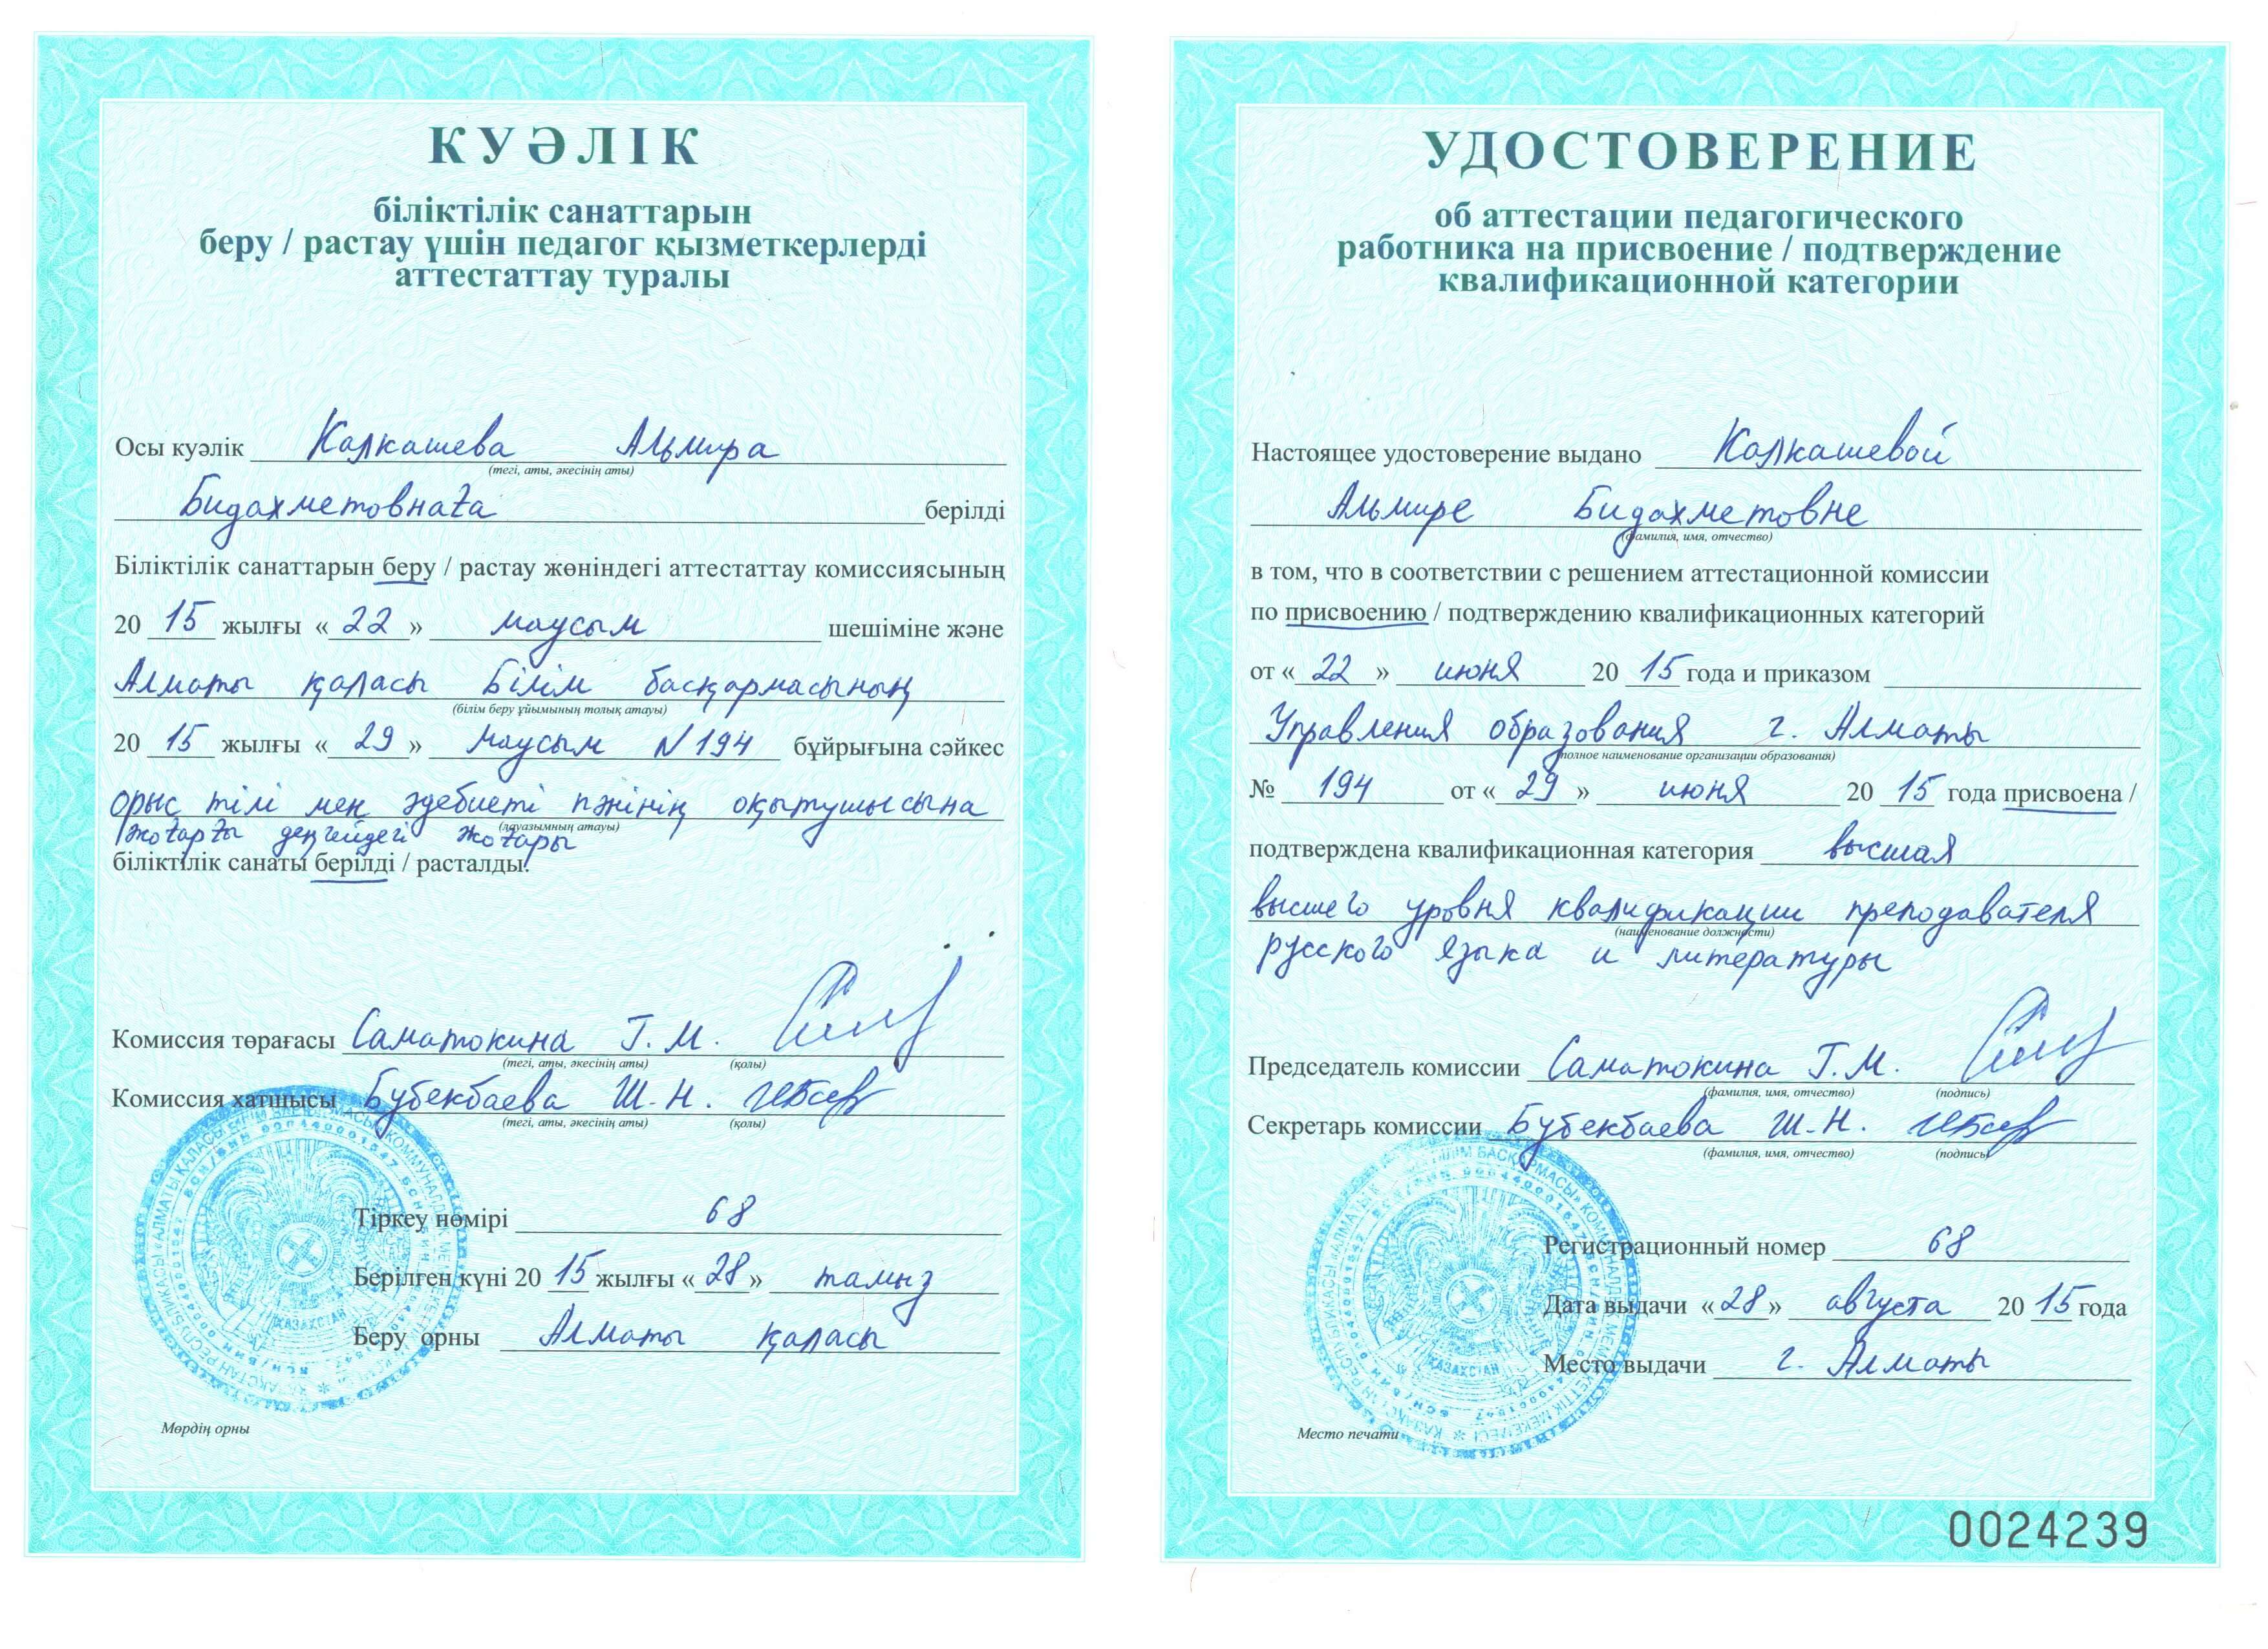 КУӘЛІК
біліктілік санаттарын
беру / растау үшін педагог қызметкерлерді
аттестаттау туралы
Осы куәлік Калкашева Альмира
(тегі, аты, әкесінің аты)
Бидахметовнаға берілді
Біліктілік санаттарын беру / растау жөніндегі аттестаттау комиссиясының
20 15 жылғы «22» маусым шешіміне және
Алматы қаласы Білім басқармасының
(білім беру ұйымының толық атауы)
20 15 жылғы «29» маусым N 194 бұйрығына сәйкес
орыс тілі мен әдебиеті пәнінің оқытушысына
(лауазымның атауы)
жоғарғы деңгейдегі жоғары
біліктілік санаты берілді / расталды.
Комиссия төрағасы Саматокина Г. М.
(тегі, аты, әкесінің аты) (қолы)
Комиссия хатшысы Бубекбаева Ш.Н.
(тегі, аты, әкесінің аты) (қолы)
Тіркеу нөмірі 68
Берілген күні 20 15 жылғы «28» тамыз
Беру орны Алматы қаласы
ҚАЗАҚСТАН
Мөрдің орны
УДОСТОВЕРЕНИЕ
об аттестации педагогического
работника на присвоение / подтверждение
квалификационной категории
Настоящее удостоверение выдано Калкашевой
Альмире Бидахметовне
(фамилия, имя, отчество)
в том, что в соответствии с решением аттестационной комиссии
по присвоению / подтверждению квалификационных категорий
от «22» июня 20 15 года и приказом
Управления образования г. Алматы
(полное наименование организации образования)
№ 194 от «29» июня 20 15 года присвоена /
подтверждена квалификационная категория высшая
высшего уровня квалификации преподавателя
(наименование должности)
русского языка и литературы
Председатель комиссии Саматокина Г.М.
(фамилия, имя, отчество) (подпись)
Секретарь комиссии Бубекбаева Ш.Н.
(фамилия, имя, отчество) (подпись)
Регистрационный номер 68
Дата выдачи «28» августа 20 15 года
Место выдачи г. Алматы
ҚАЗАҚСТАН
Место печати
0024239